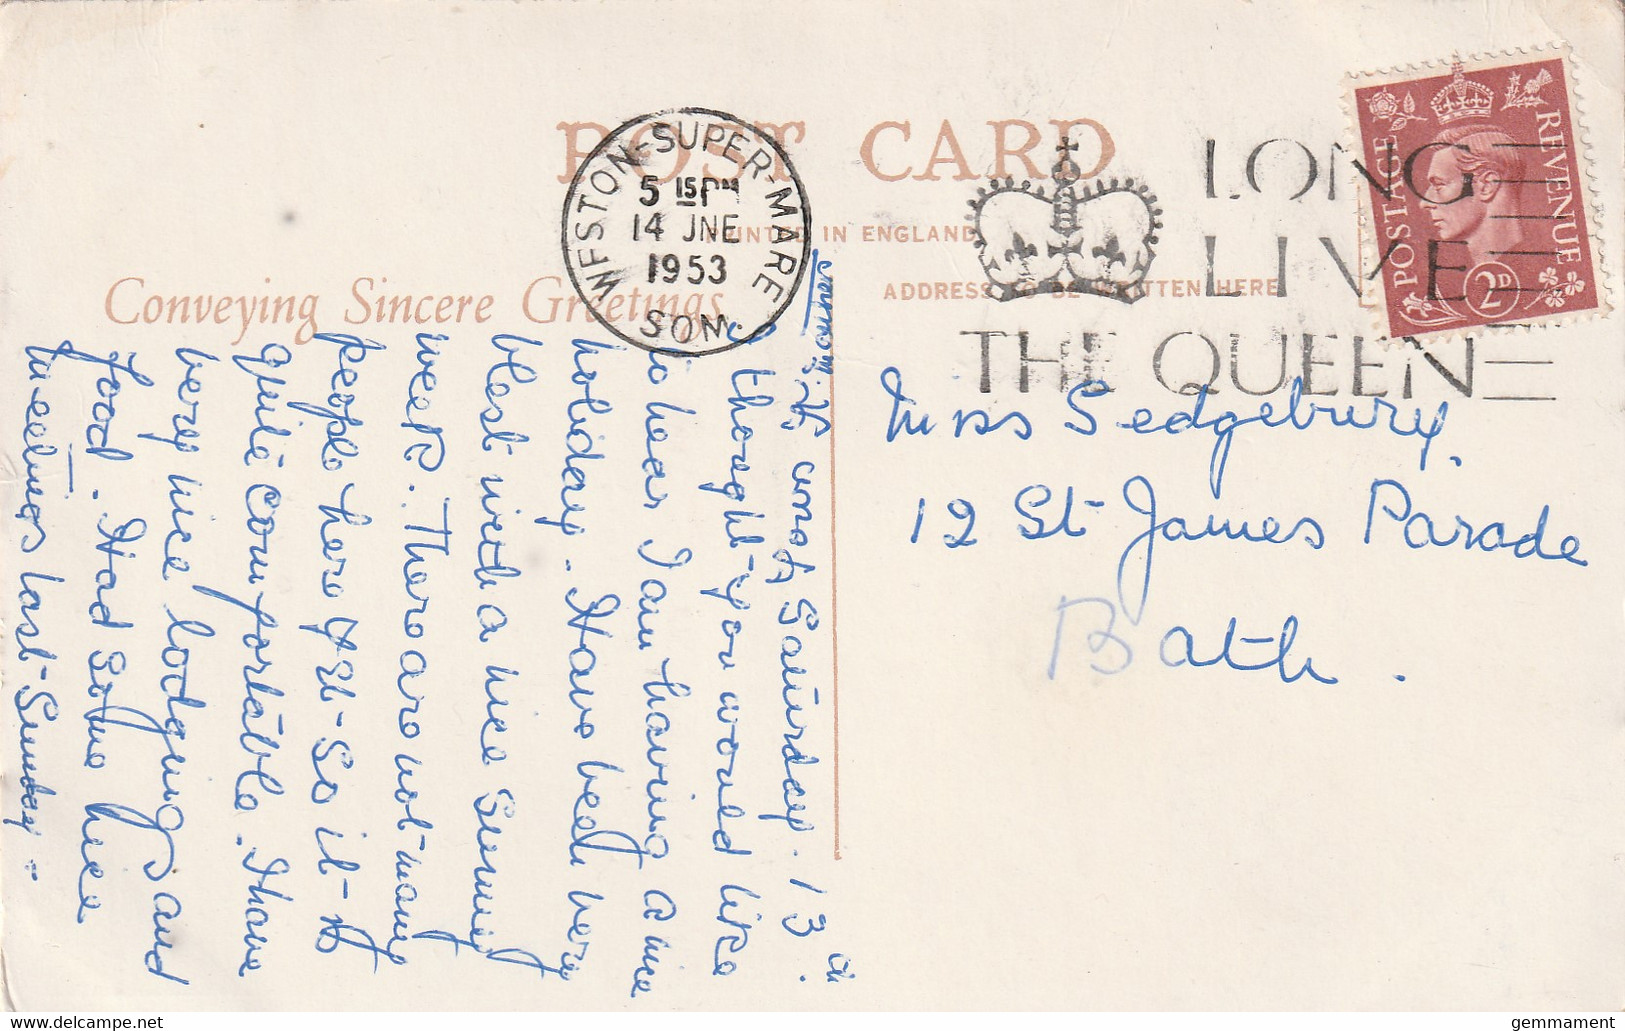 POST CARD
PRINTED IN ENGLAND
ADDRESS TO BE WRITTEN HERE
Conveying Sincere Greetings
WESTON-SUPER-MARE
5 15 PM
14 JNE
1953
SOM.
LONG
LIVE
THE QUEEN
POSTAGE
REVENUE
2D
Saturday. 13th.
I thought you would like
to hear I am having a nice
holiday. Have been very
blest with a nice Sunny
week. There are not many
people here yet- so it is
quite comfortable. I have
very nice lodgings and
food. Had some nice
meetings last Sunday -
Miss Sedgebury.
12 St James Parade
Bath.
delcampe.net
gemmament